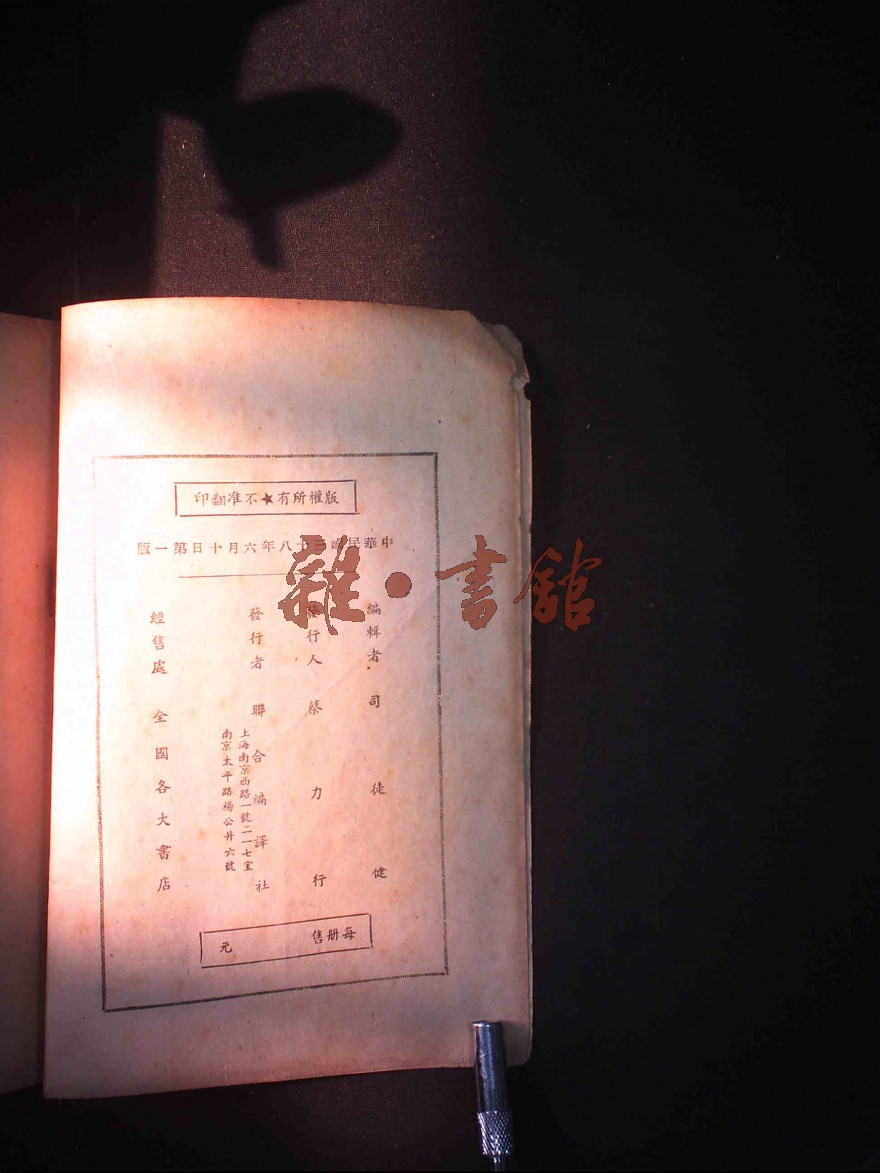 版權所有★不准翻印
中華民國三十八年六月十日第一版
編輯者 司徒健
行人 蔡力行
發行者 聯合編譯社
上海南京西路一號二一七室
南京太平路楊公井六號
經售處 全國各大書店
每册售 元
雜·書館